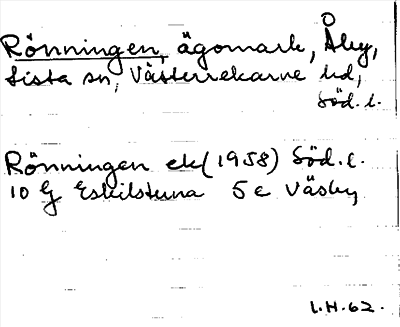 Rönningen, ägomark, Åby,
Lista sn, Västerrekarne hd,
Söd. l.
Rönningen ek (1958) Söd. l.
10 G Eskilstuna 5 e Väsby
I.H. 62.